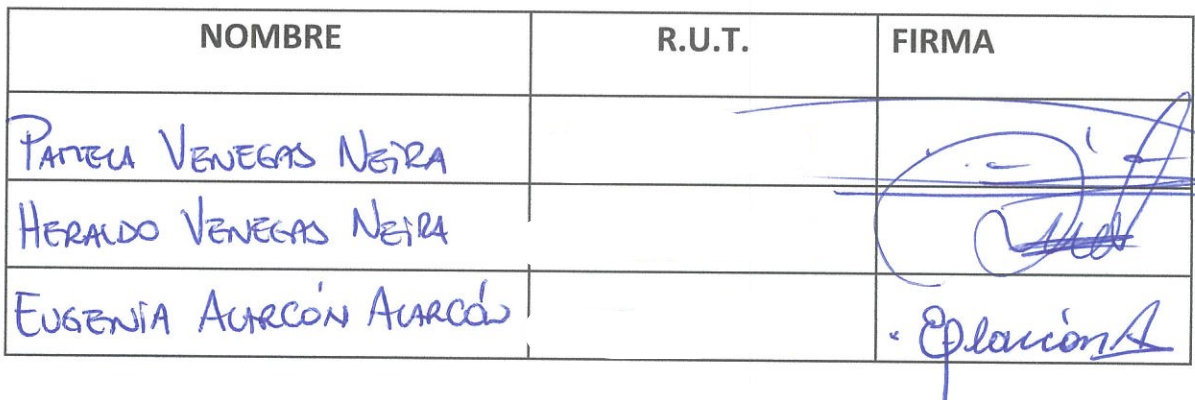 NOMBRE R.U.T. FIRMA
PAMELA VENEGAS NEIRA
HERALDO VENEGAS NEIRA
EUGENIA ALARCÓN ALARCÓN EAlarcónA